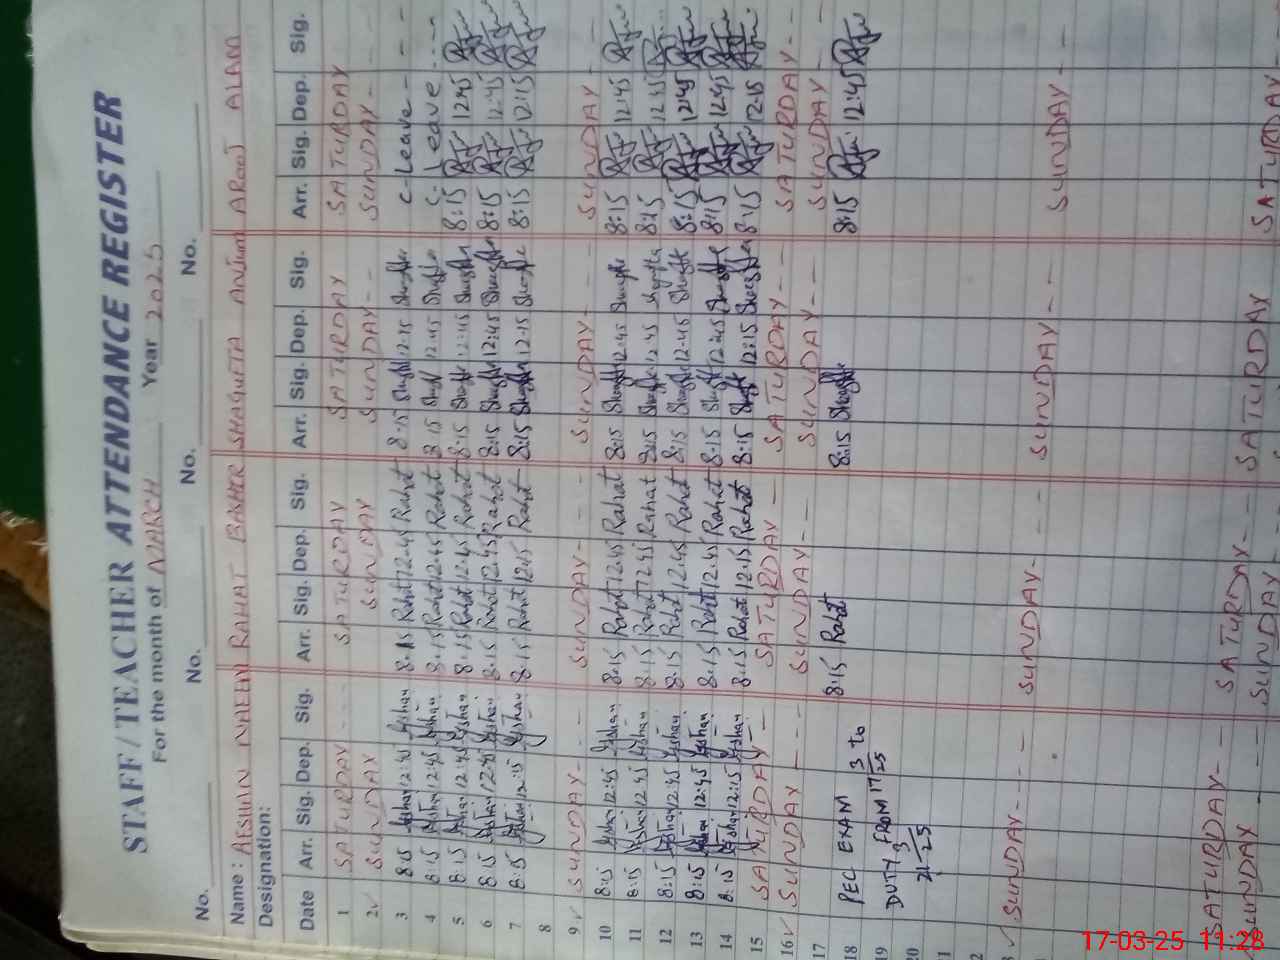 STAFF/TEACHER ATTENDANCE REGISTER
For the month of MARCH Year 2025
No. No. No. No.
Name: AFSHAN NAEEM RAHAT BAKHER SHAGUFTA ANJUM AROOJ ALAM
Designation:
Date Arr. Sig. Dep. Sig. Arr. Sig. Dep. Sig. Arr. Sig. Dep. Sig. Arr. Sig. Dep. Sig.
1 SATURDAY SATURDAY SATURDAY SATURDAY
2 SUNDAY SUNDAY SUNDAY SUNDAY
3 8:15 Afshan 12:45 Afshan 8:15 Rahat 12-45 Rahat 8-15 12-45 C-Leave
4 8:15 Afshan 12:45 Afshan 8-15 Rahat 12-45 Rahat 8 15 12-45 C-Leave
5 8:15 Afshan 12:45 Afshan 8-15 Rahat 12-45 Rahat 8-15 12:45 8:15 12:45
6 8:15 Afshan 12:45 Afshan 8:15 Rahat 12-45 Rahat 8:15 12:45 8:15 12:45
7 8:15 Afshan 12:15 Afshan 8-15 Rahat 12:15 Rahat 8:15 12-15 8:15 12:15
8
9 SUNDAY SUNDAY SUNDAY SUNDAY
10 8:15 Afshan 12:45 Afshan 8:15 Rahat 12:45 Rahat 8:15 12:45 8:15 12:45
11 8:15 Afshan 12:45 Afshan 8:15 Rahat 12:45 Rahat 8:15 12:45 8:15 12:45
12 8:15 Afshan 12:45 Afshan 8:15 Rahat 12:45 Rahat 8:15 12-45 8:15 12:45
13 8:15 Afshan 12:45 Afshan 8:15 Rahat 12:45 Rahat 8-15 12:45 8:15 12:45
14 8:15 Afshan 12:15 Afshan 8:15 Rahat 12:15 Rahat 8:15 12:15 8:15 12:15
15 SATURDAY SATURDAY SATURDAY SATURDAY
16 SUNDAY SUNDAY SUNDAY SUNDAY
17 8:15 Rahat 8:15 8:15 12:45
18 PEC EXAM
19 DUTY FROM 17/3/25 to
20 21/3/25
21
SUNDAY SUNDAY SUNDAY SUNDAY
SATURDAY SATURDAY SATURDAY SATURDAY
SUNDAY SUNDAY
17-03-25 11:28